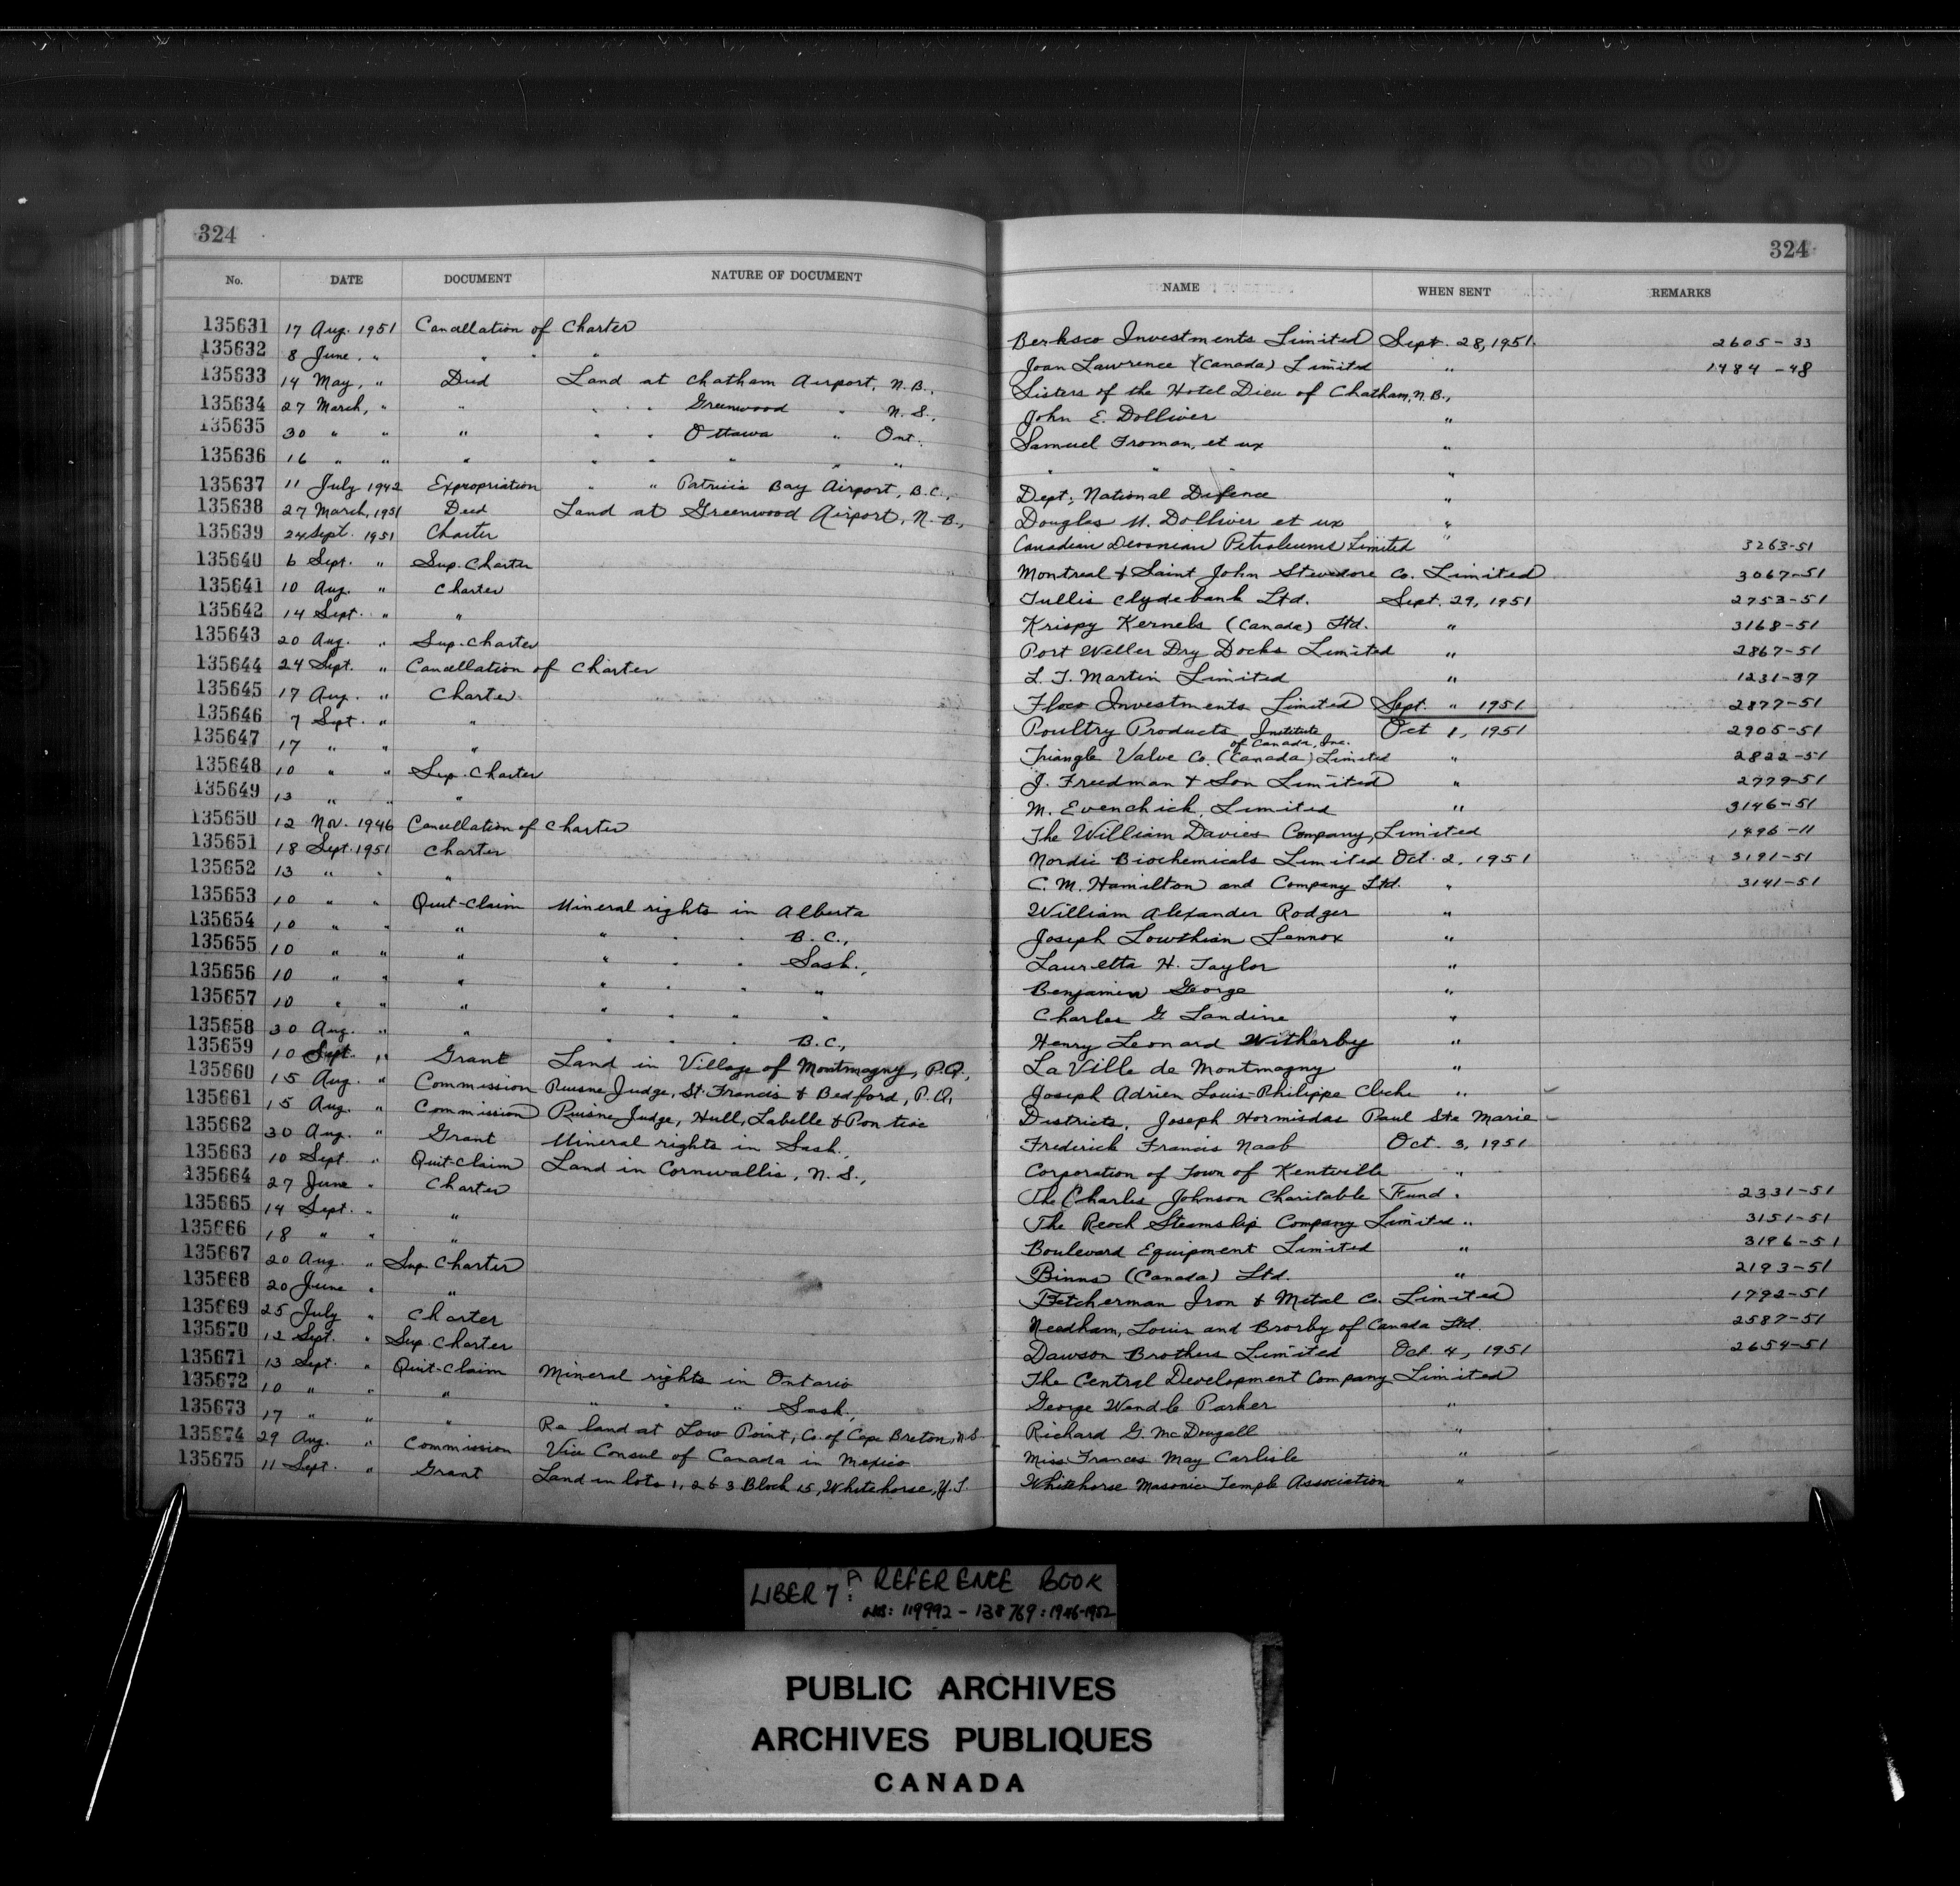 324
324
No. DATE DOCUMENT NATURE OF DOCUMENT NAME WHEN SENT REMARKS
135631 17 Aug. 1951 Cancellation of Charter Berksco Investments Limited Sept. 28, 1951. 2605-33
135632 8 June, " " " " Joan Lawrence (Canada) Limited " 1484-48
135633 14 May, " Deed Land at Chatham Airport, N.B., Sisters of the Hotel Dieu of Chatham, N.B.,
135634 27 March, " " " " Greenwood " N.S., John E. Dolliver "
135635 30 " " " " " Ottawa " Ont. Samuel Froman, et ux "
135636 16 " " " " " " " " " " " "
135637 11 July 1942 Expropriation " " Patricia Bay Airport, B.C., Dept. National Defence "
135638 27 March, 1951 Deed Land at Greenwood Airport, N.B., Douglas M. Dolliver et ux "
135639 24 Sept. 1951 Charter Canadian Devonian Petroleums Limited " 3263-51
135640 6 Sept. " Sup. Charter Montreal & Saint John Stevedore Co. Limited 3067-51
135641 10 Aug. " Charter Tullis Clydebank Ltd. Sept. 29, 1951 2753-51
135642 14 Sept. " " Krispy Kernels (Canada) Ltd. " 3168-51
135643 20 Aug. " Sup. Charter Port Weller Dry Docks Limited " 2867-51
135644 24 Sept. " Cancellation of Charter L. T. Martin Limited " 1231-37
135645 17 Aug. " Charter Floco Investments Limited Sept. " 1951 2877-51
135646 7 Sept. " " Poultry Products Institute of Canada, Inc. Oct 1, 1951 2905-51
135647 17 " " " Triangle Valve Co. (Canada) Limited " 2822-51
135648 10 " " Sup. Charter J. Freedman & Son Limited " 2779-51
135649 13 " " " M. Evenchick, Limited " 3146-51
135650 12 Nov. 1946 Cancellation of Charter The William Davies Company, Limited 1496-11
135651 18 Sept. 1951 Charter Nordic Biochemicals Limited Oct. 2, 1951 3191-51
135652 13 " " " C. M. Hamilton and Company Ltd. " 3141-51
135653 10 " " Quit-Claim Mineral rights in Alberta William Alexander Rodger "
135654 10 " " " " " " B.C., Joseph Lowthian Lennox "
135655 10 " " " " " " Sask., Lauretta H. Taylor "
135656 10 " " " " " " " Benjamin George "
135657 10 " " " " " " " Charles G Landine "
135658 30 Aug. " " " " " B.C., Henry Leonard Witherby "
135659 10 Sept. " Grant Land in Village of Montmagny, P.Q., La Ville de Montmagny "
135660 15 Aug. " Commission Puisne Judge, St. Francis & Bedford, P.Q. Joseph Adrien Louis-Philippe Cliche "
135661 15 Aug. " Commission Puisne Judge, Hull, Labelle & Pontiac Districts, Joseph Hormisdas Paul Ste Marie
135662 30 Aug. " Grant Mineral rights in Sask., Frederick Francis Naab Oct. 3, 1951
135663 10 Sept. " Quit-Claim Land in Cornwallis, N.S., Corporation of Town of Kentville "
135664 27 June " Charter The Charles Johnson Charitable Fund. 2331-51
135665 14 Sept. " " The Reoch Steamship Company Limited " 3151-51
135666 18 " " " Boulevard Equipment Limited " 3196-51
135667 20 Aug. " Sup. Charter Binns (Canada) Ltd. " 2193-51
135668 20 June " " Betcherman Iron & Metal Co. Limited 1792-51
135669 25 July " Charter Needham, Louis and Brorby of Canada Ltd. 2587-51
135670 12 Sept. " Sup. Charter Dawson Brothers Limited Oct. 4, 1951 2654-51
135671 13 Sept. " Quit-Claim Mineral rights in Ontario The Central Development Company Limited
135672 10 " " " " " " Sask., George Wendle Parker "
135673 17 " " " Re land at Low Point, Co. of Cape Breton, N.S. Richard G. McDougall "
135674 29 Aug. " Commission Vice Consul of Canada in Mexico Miss Frances May Carlisle "
135675 11 Sept. " Grant Land in lots 1, 2 & 3 Block 15, Whitehorse, Y.T. Whitehorse Masonic Temple Association "
LIBER 7A: REFERENCE BOOK
NOS: 119992 - 138769: 1946-1952
PUBLIC ARCHIVES
ARCHIVES PUBLIQUES
CANADA